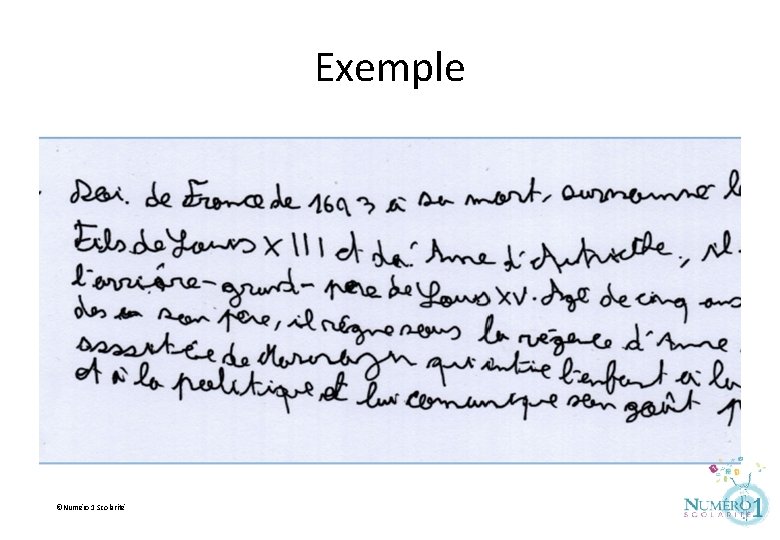 Exemple
Roi. de France de 1693 à sa mort, surnommé l
Fils de Louis XIII et da' Anne d'Autriche, il
l'arrière-grand-père de Louis XV. Agé de cinq ans
des en son père, il règne sous la régence d'Anne
assistée de qui initie l'enfant à la
et à la politique et lui comunique son goût p
©Numéro 1 Scolarité
NUMÉRO 1
SCOLARITÉ